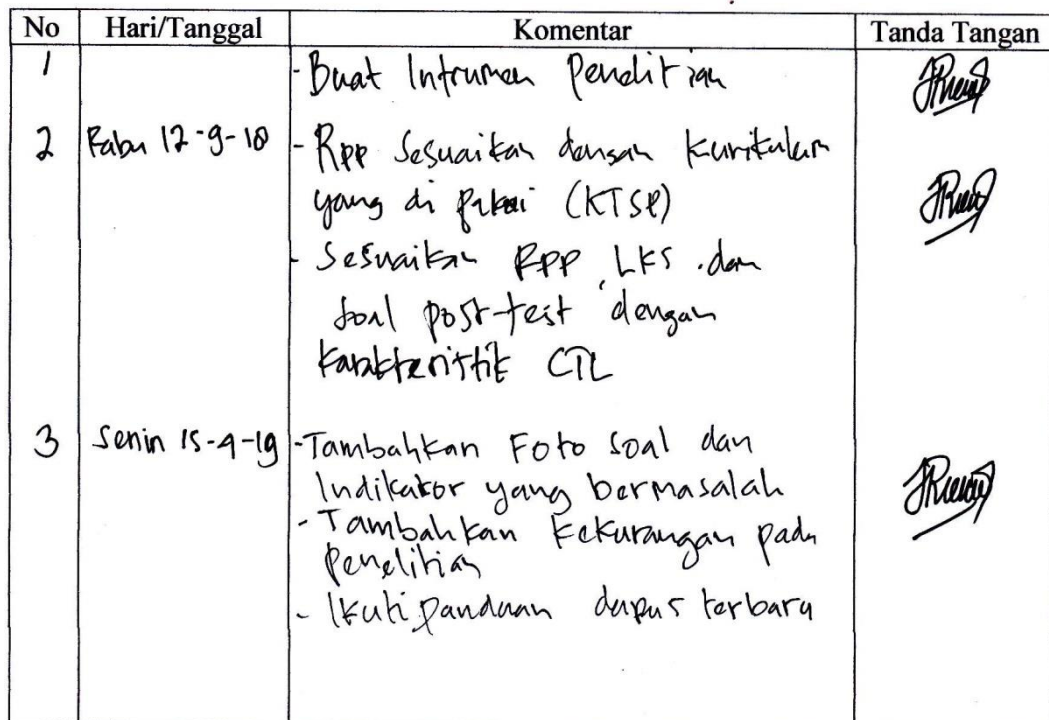 No Hari/Tanggal Komentar Tanda Tangan
1 - Buat Intrumen Penelitian
2 Rabu 12-9-18 - Rpp Sesuaikan dengan Kurikulum
yang di pakai (KTSP)
- Sesuaikan RPP, LKS, dan
soal post-test dengan
Karakteristik CTL
3 Senin 15-4-19 - Tambahkan Foto soal dan
Indikator yang bermasalah
- Tambahkan Kekurangan pada
Penelitian
- Ikuti panduan dapus terbaru